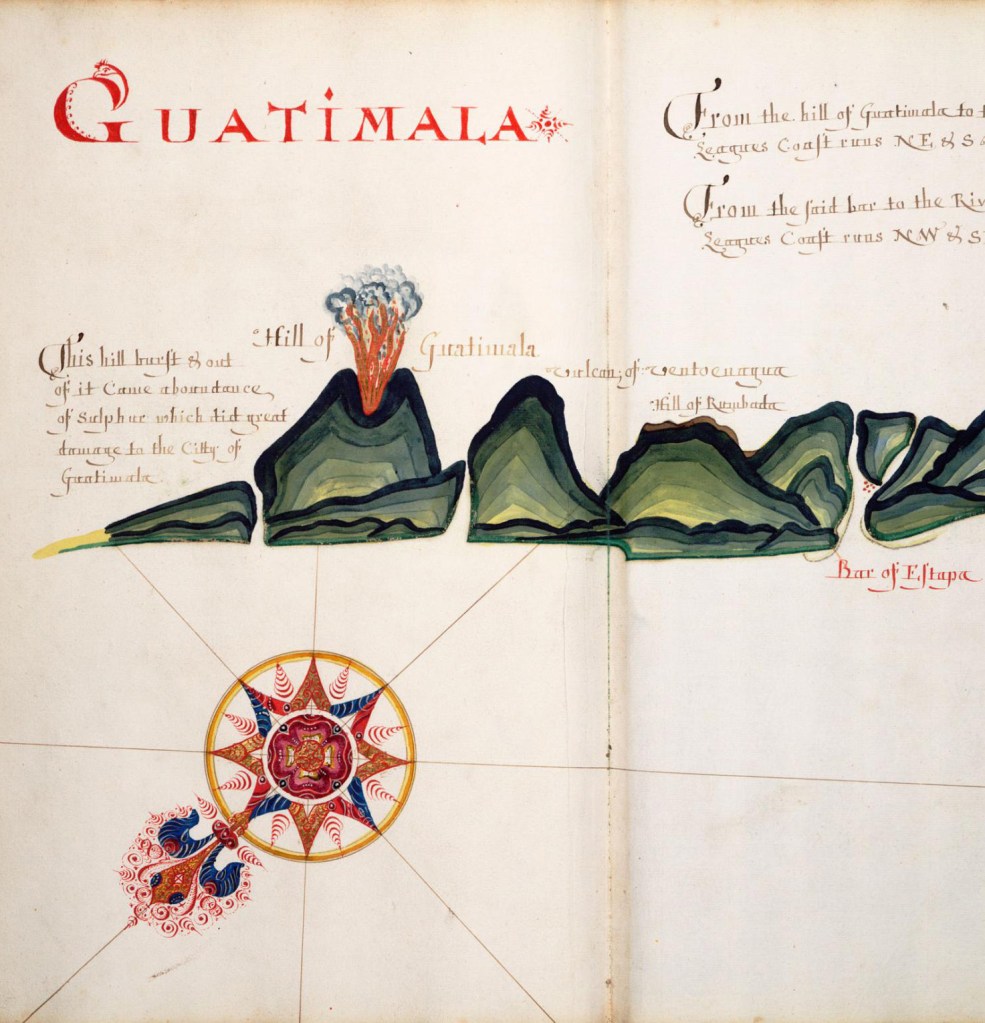 GUATIMALA
From the hill of Guatimala to t
Leagues Coaſt runs NE & S
From the ſaid bar to the Riv
Leagues Coaſt runs NW & S
Hill of Guatimala
This hill burſt & out
of it Came aboundance
of Sulphur which did great
damage to the Citty of
Guatimala
Vulcan of
Hill of Rumbada
Bar of Eſtapa